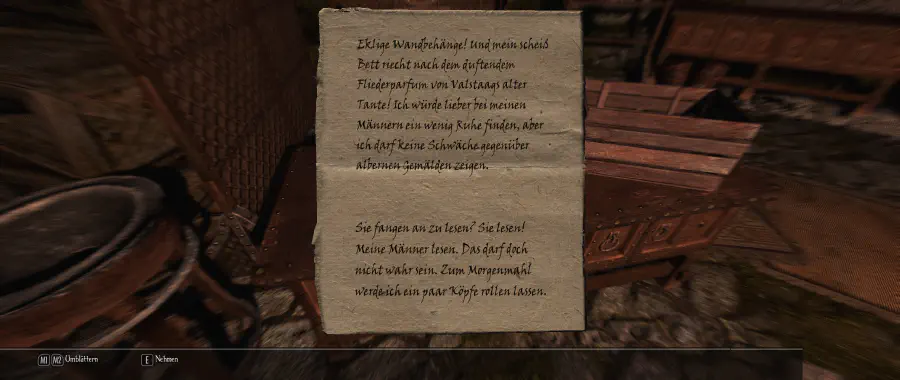 Eklige Wandbehänge! Und mein scheiß
Bett riecht nach dem duftendem
Fliederparfum von Valstaags alter
Tante! Ich würde lieber bei meinen
Männern ein wenig Ruhe finden, aber
ich darf keine Schwäche gegenüber
albernen Gemälden zeigen.
Sie fangen an zu lesen? Sie lesen!
Meine Männer lesen. Das darf doch
nicht wahr sein. Zum Morgenmahl
werde ich ein paar Köpfe rollen lassen.
M1 M2 Umblättern
E Nehmen